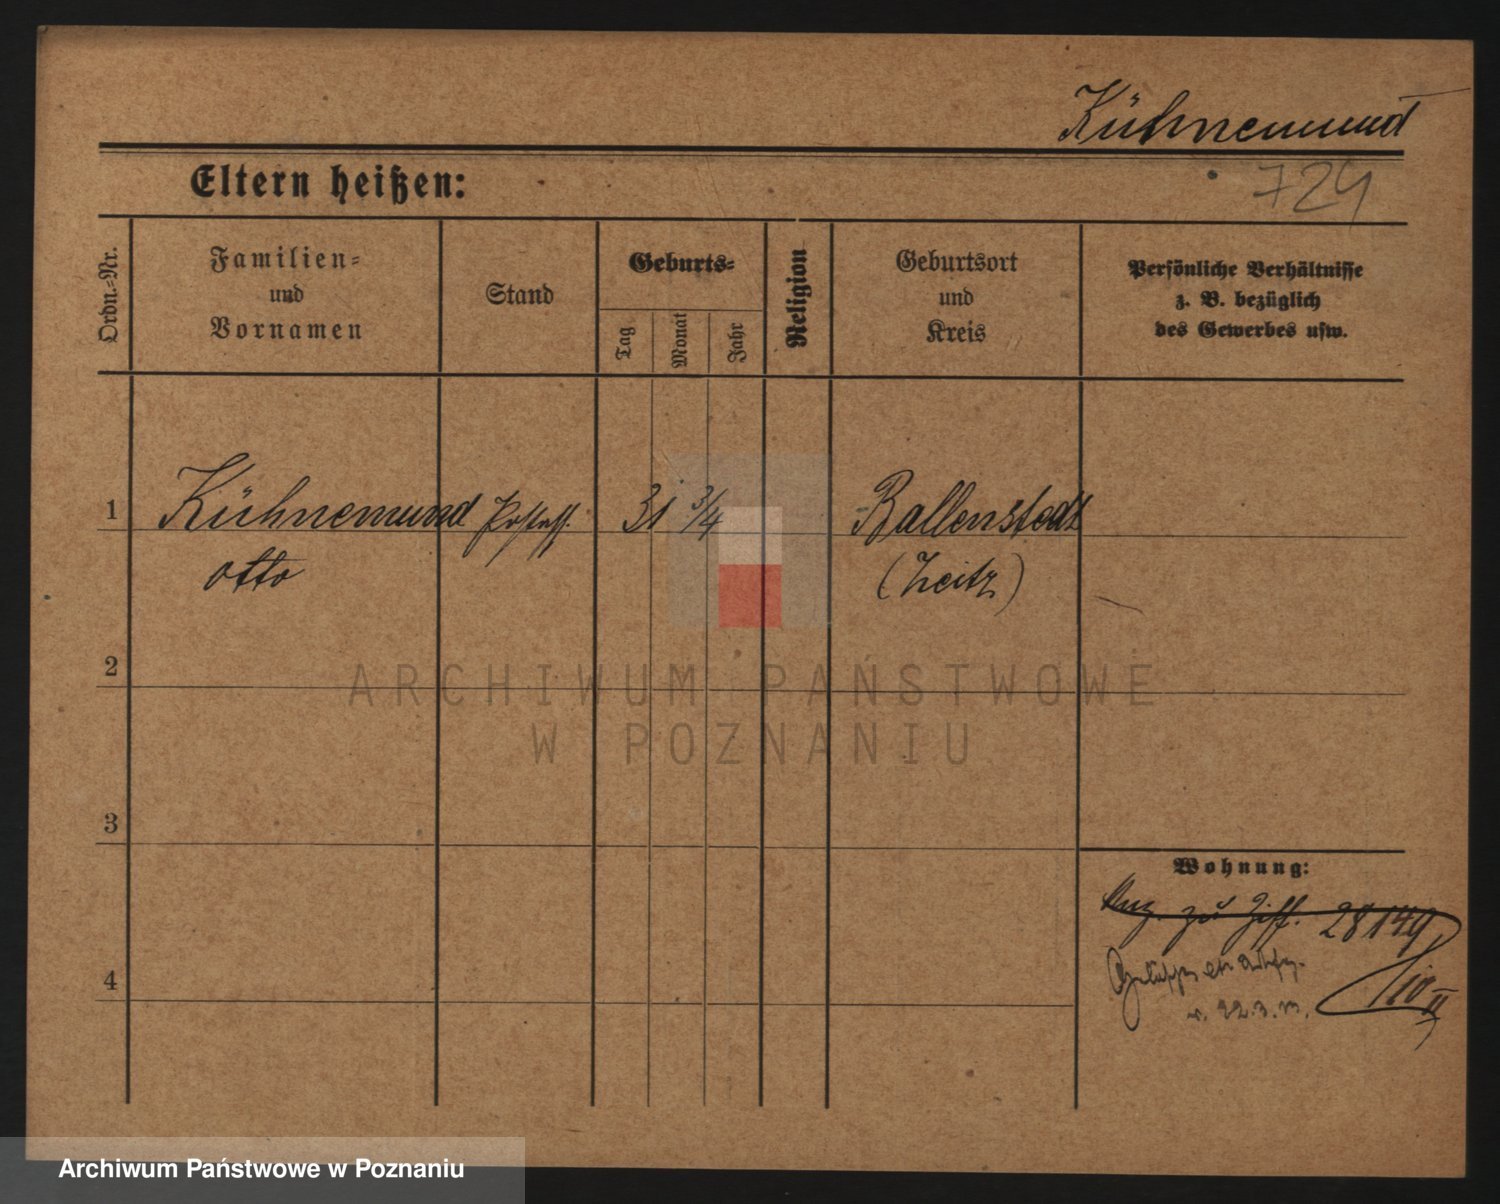 Kühnemund
Eltern heißen:
724
Ordn.-Nr.
Familien-
und
Vornamen
Stand
Geburts-
Tag
Monat
Jahr
Religion
Geburtsort
und
Kreis
Persönliche Verhältnisse
z. B. bezüglich
des Gewerbes usw.
1
Kühnemund Postass. 31 3/4 Ballenstedt
Otto (Zeitz)
2
ARCHIWUM PAŃSTWOWE
W POZNANIU
3
Wohnung:
zu Ziff. 28149
4
v. 22.3.
Archiwum Państwowe w Poznaniu